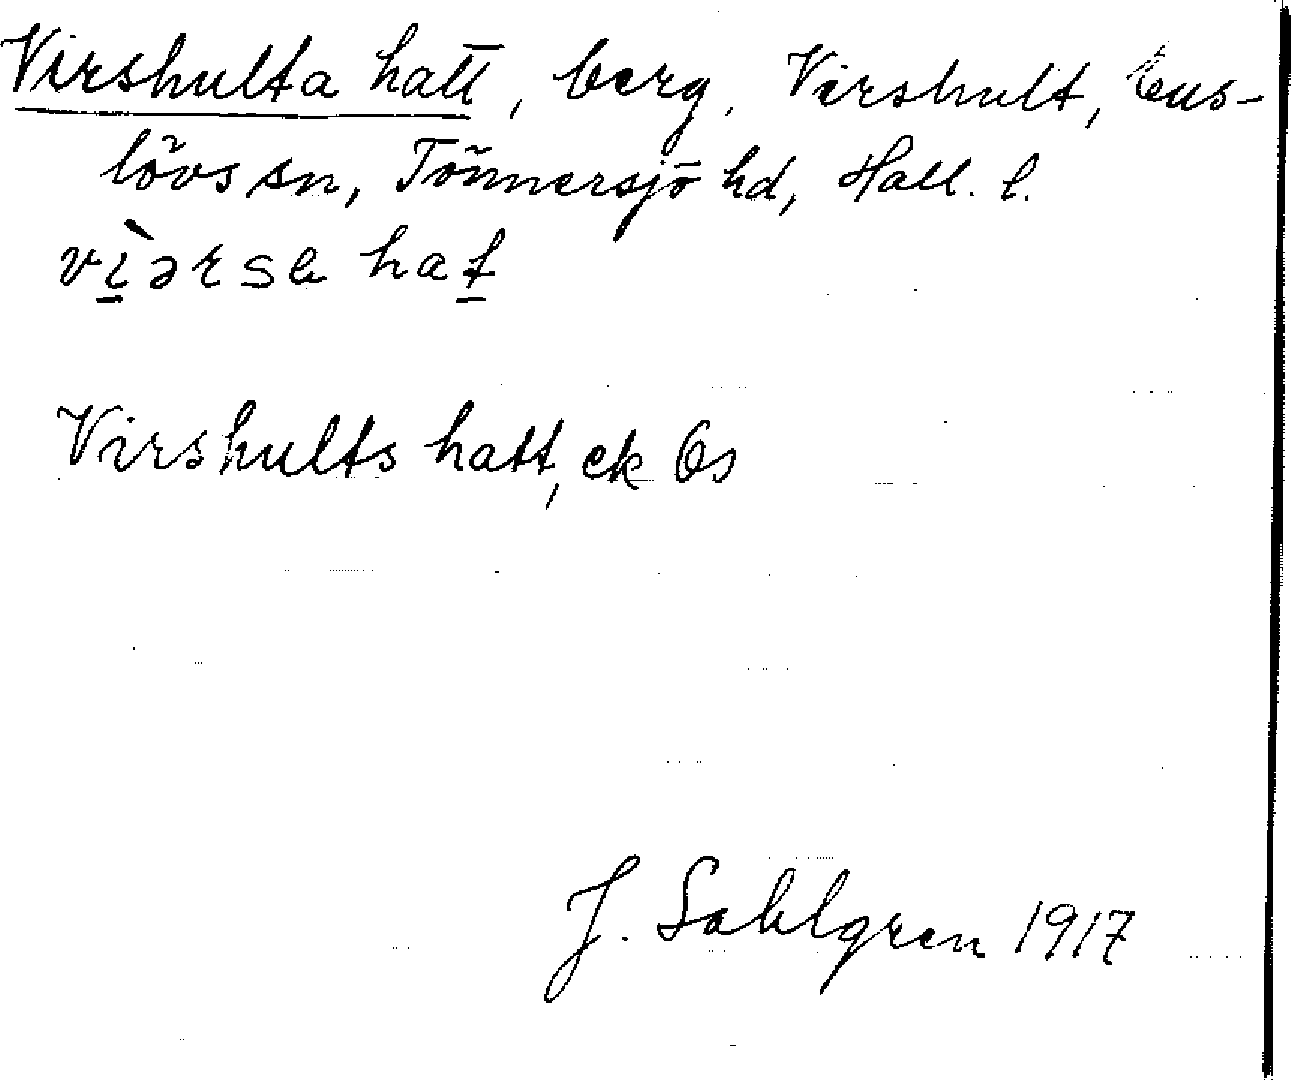 Virshulta hatt, berg, Virshult, Eus-
lövs sn, Tönnersjö hd, Hall. l.
vìərsa hat
Virshults hatt, ek 6s
J. Sahlgren 1917